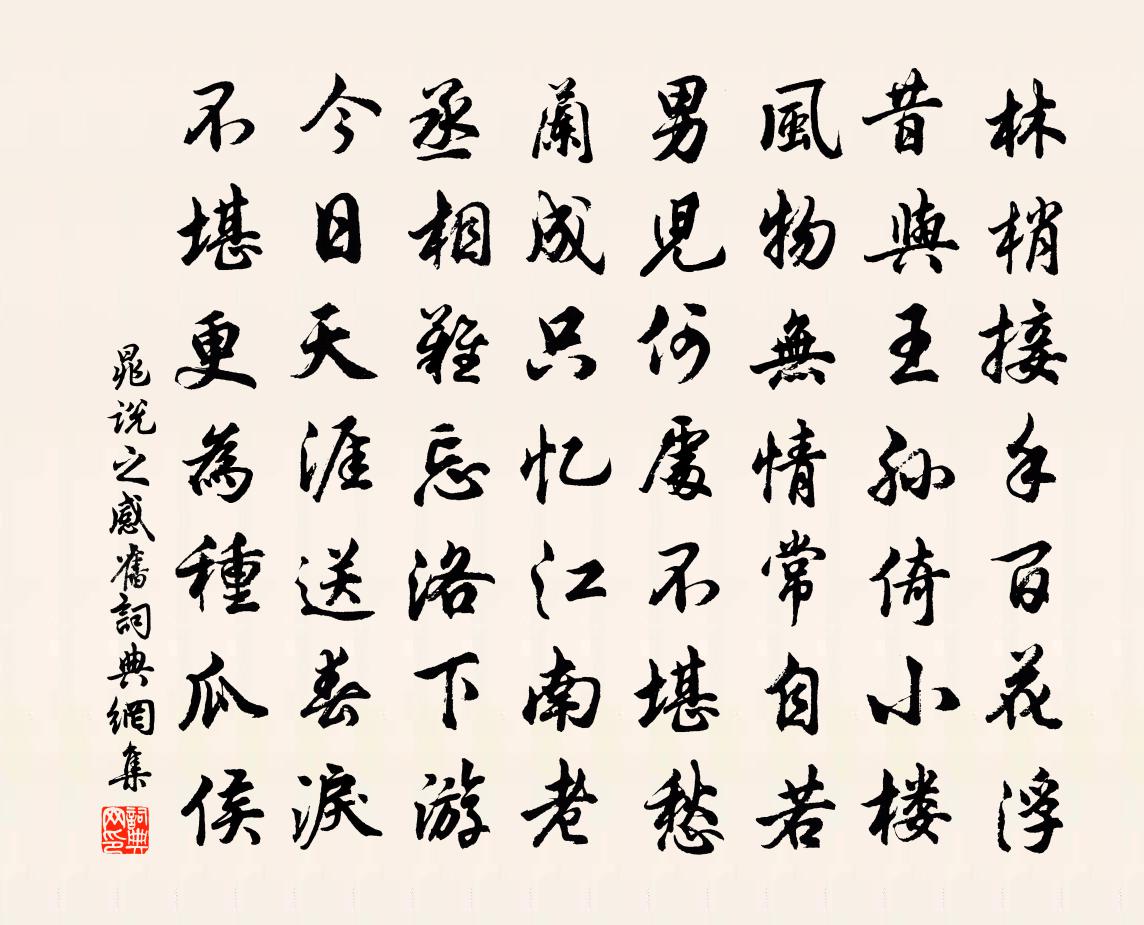 林梢接手百花浮
昔與王孫倚小楼
風物無情常自若
男児何處不堪愁
蘭成只忆江南老
丞相難忘洛下游
今日天涯送春淚
不堪更為種瓜侯
晁说之感舊詞典網集
詞典网印